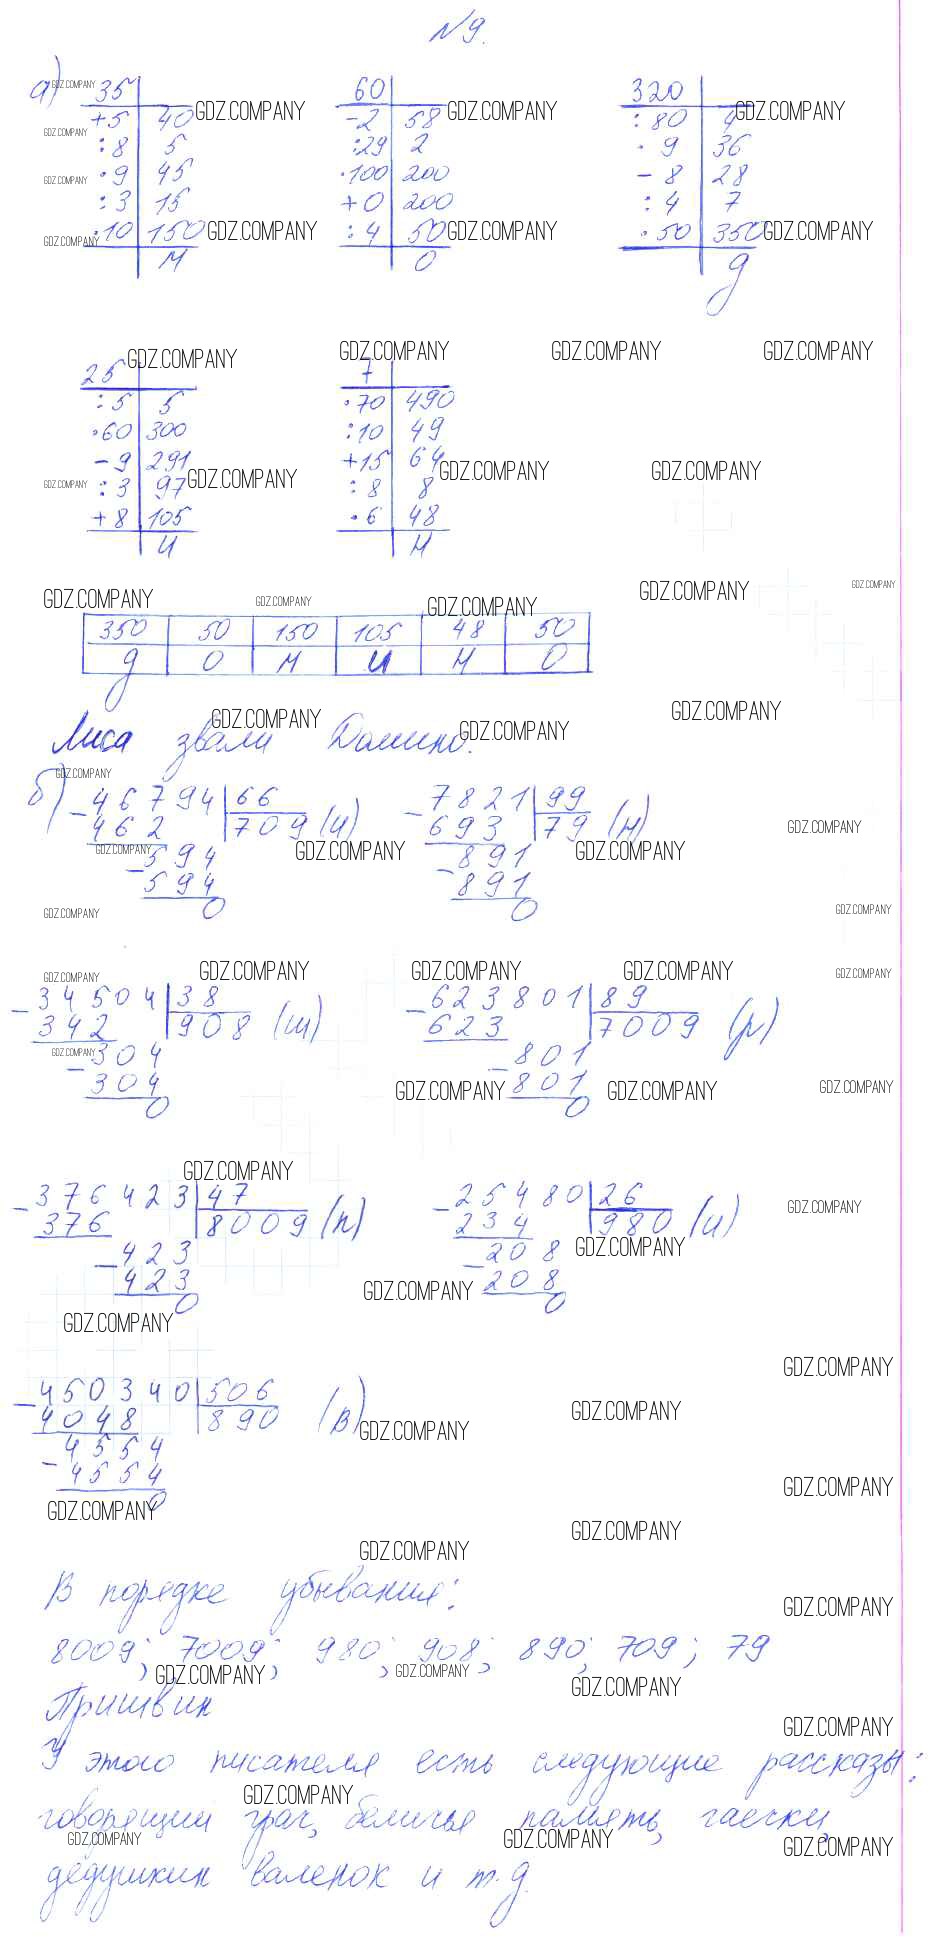 №9.
а) 35 60 320
+5 40 -2 58 :80 4
:8 5 :29 2 ·9 36
·9 45 ·100 200 -8 28
:3 15 +0 200 :4 7
·10 150 :4 50 ·50 350
М О Д
25 7
:5 5 ·70 490
·60 300 :10 49
-9 291 +15 64
:3 97 :8 8
+8 105 ·6 48
И Н
350 50 150 105 48 50
Д О М И Н О
Лиса звали Домино.
б) -46794 66 -7821 99
462 709 (и) 693 79 (н)
-594 -891
594 891
0 0
-34504 38 -623801 89
342 908 (ш) 623 7009 (р)
-304 -801
304 801
0 0
-376423 47 -25480 26
376 8009 (п) 234 980 (и)
-423 -208
423 208
0 0
-450340 506
4048 890 (в)
-4554
4554
0
В порядке убывания:
8009; 7009; 980; 908; 890; 709; 79
Пришвин
У этого писателя есть следующие рассказы:
говорящий грач, беличья память, гаечки,
дедушкин валенок и т.д.
GDZ.COMPANY